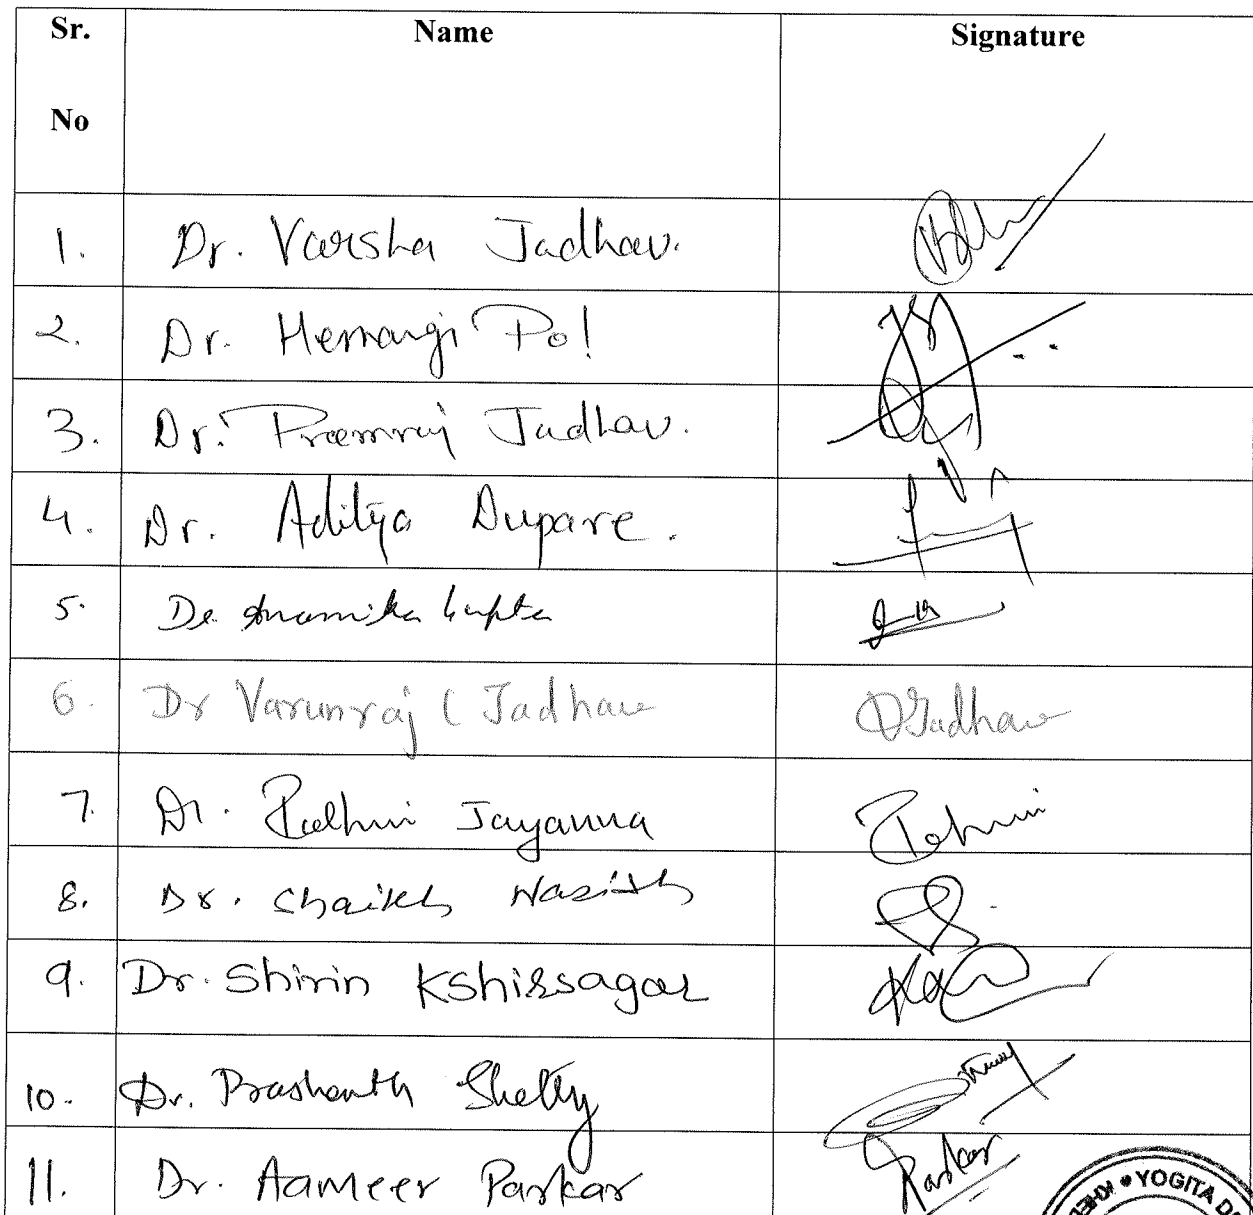 Sr. No Name Signature
1. Dr. Varsha Jadhav.
2. Dr. Hemangi Pol
3. Dr. Premraj Jadhav.
4. Dr. Aditya Dupare.
5. Dr. Anamika Gupta
6. Dr Varunraj C Jadhav Jadhav
7. Dr. Jayanna
8. Dr. Shaikh
9. Dr. Shirin Kshirsagar
10. Dr. Prashanth Shetty
11. Dr. Aameer Parkar Parkar
YOGITA